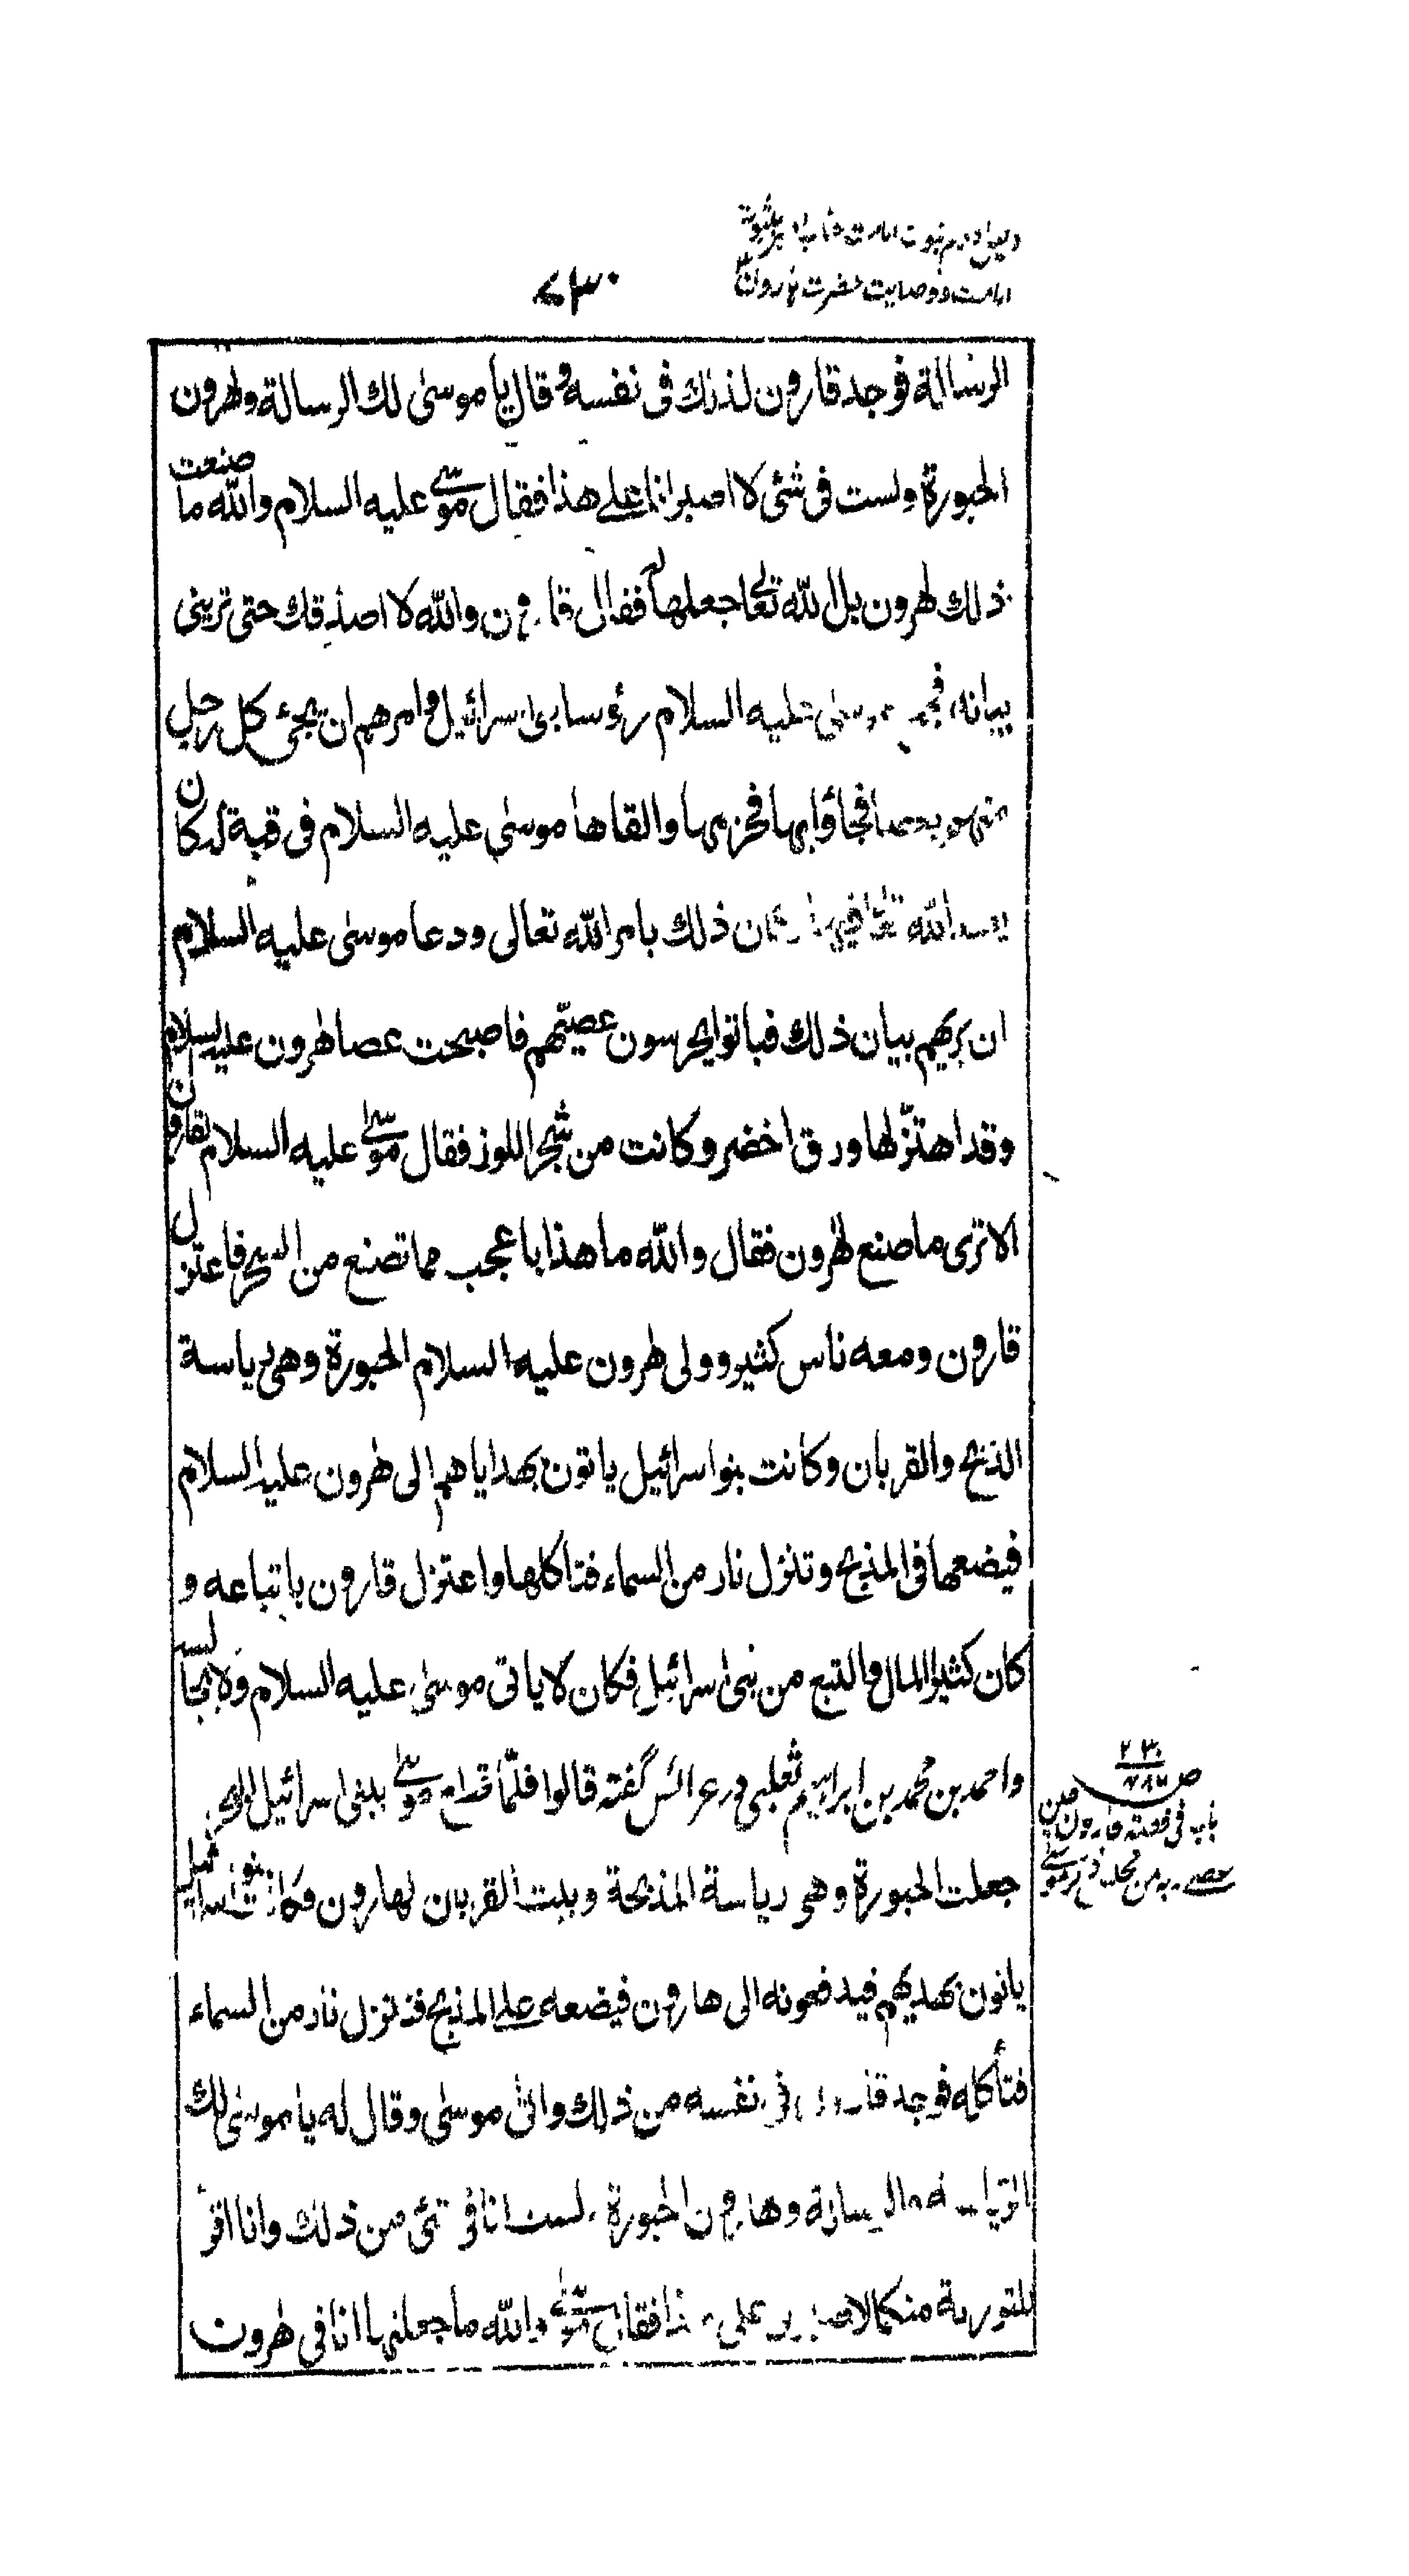 امامت و وصایت حضرت هارون
۷۳۰
الرسالة فوجد قارون لذلك فى نفسه وقال يا موسى لك الرسالة ولهرون
الحبورة ولست فى شئ لا اصبر انا على هذا فقال موسى عليه السلام والله ما صنعت
ذلك لهرون بل الله تعالى جعلها له فقال قارون والله لا اصدقك حتى ترينى
بيانه فجمع موسى عليه السلام رؤسا بنى اسرائيل وامرهم ان يجئ كل رجل
منهم بعصا فجاؤا بها فحزمها والقاها موسى عليه السلام فى قبة له كان
يعبد الله تعالى فيها وكان ذلك بامر الله تعالى ودعا موسى عليه السلام
ان يريهم بيان ذلك فباتوا يحرسون عصيتهم فاصبحت عصا هرون عليه السلام
وقد اهتز لها ورق اخضر وكانت من شجر اللوز فقال موسى عليه السلام لقارون
الا ترى ما صنع لهرون فقال والله ما هذا باعجب مما تصنع من السحر فاعتزل
قارون ومعه ناس كثير وولى هرون عليه السلام الحبورة وهى رياسة
الذبح والقربان وكانت بنو اسرائيل ياتون بهداياهم الى هرون عليه السلام
فيضعها فى المذبح وتنزل نار من السماء فتاكلها واعتزل قارون باتباعه و
كان كثير المال والتبع من بنى اسرائيل فكان لا ياتى موسى عليه السلام ولا يجالسه
واحمد بن محمد بن ابراهيم ثعلبى در عرائس گفته قالوا فلما قطع موسى ببنى اسرائيل البحر
جعلت الحبورة وهو رياسة المذبحة وبيت القربان لهارون فكانت بنو اسرائيل
ياتون بهديهم فيدفعونه الى هارون فيضعه على المذبح فتنزل نار من السماء
فتأكله فوجد قارون فى نفسه من ذلك واتى موسى وقال له يا موسى لك
وهارون الحبورة لست انا فى شئ من ذلك وانا اقرأ
للتورىة منكما لا على هذا فقال موسى والله ما جعلتها انا فى هرون
ص ۲۳۰ / ۷۸۷
باب فى قصة قارون حين